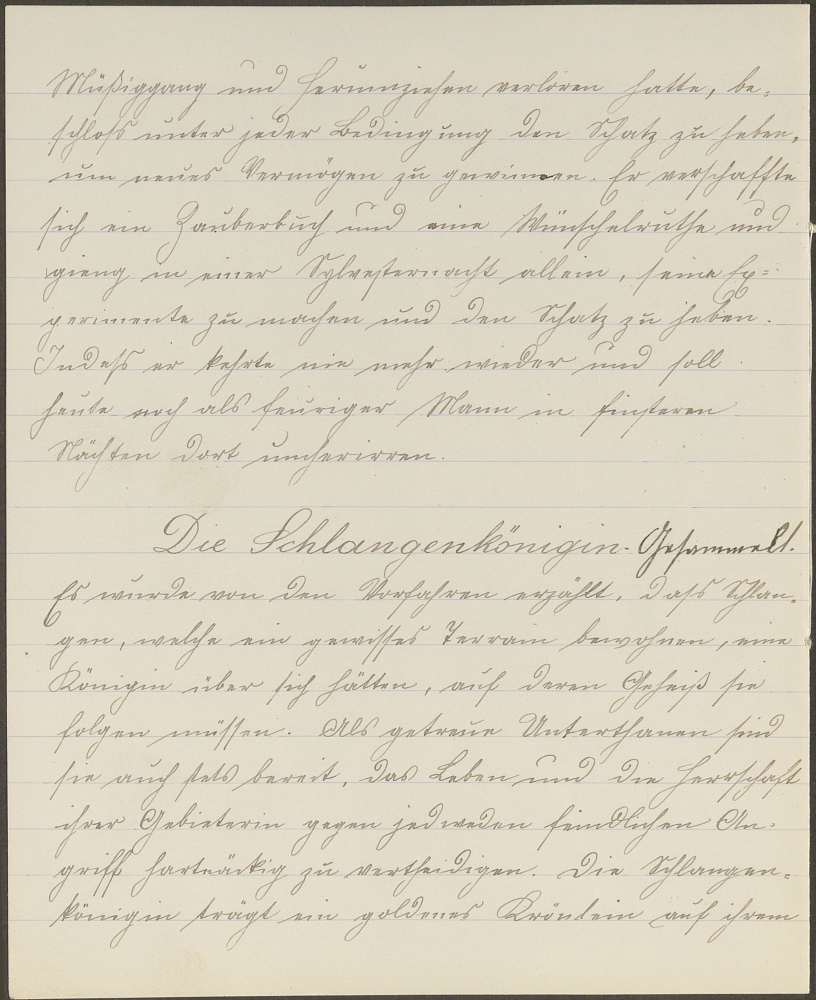 Müßiggang und Herumziehen verloren hatte, be-
schloss unter jeder Bedingung den Schatz zu heben,
um neues Vermögen zu gewinnen. Er verschaffte
sich ein Zauberbuch und eine Wünschelruthe und
gieng in einer Sylvesternacht allein, seine Ex=
perimente zu machen und den Schatz zu heben.
Indess er kehrte nie mehr wieder und soll
heute noch als feuriger Mann in finsteren
Nächten dort umherirren.
Die Schlangenkönigin. Gesammelt.
Es wurde von den Vorfahren erzählt, dass Schlan-
gen, welche ein gewisses Terrain bewohnen, eine
Königin über sich hätten, auf deren Geheiß sie
folgen müssen. Als getreue Unterthanen sind
sie auch stets bereit, das Leben und die Herrschaft
ihrer Gebieterin gegen jedweden feindlichen An-
griff hartnäckig zu vertheidigen. Die Schlangen-
königin trägt ein goldenes Krönlein auf ihrem